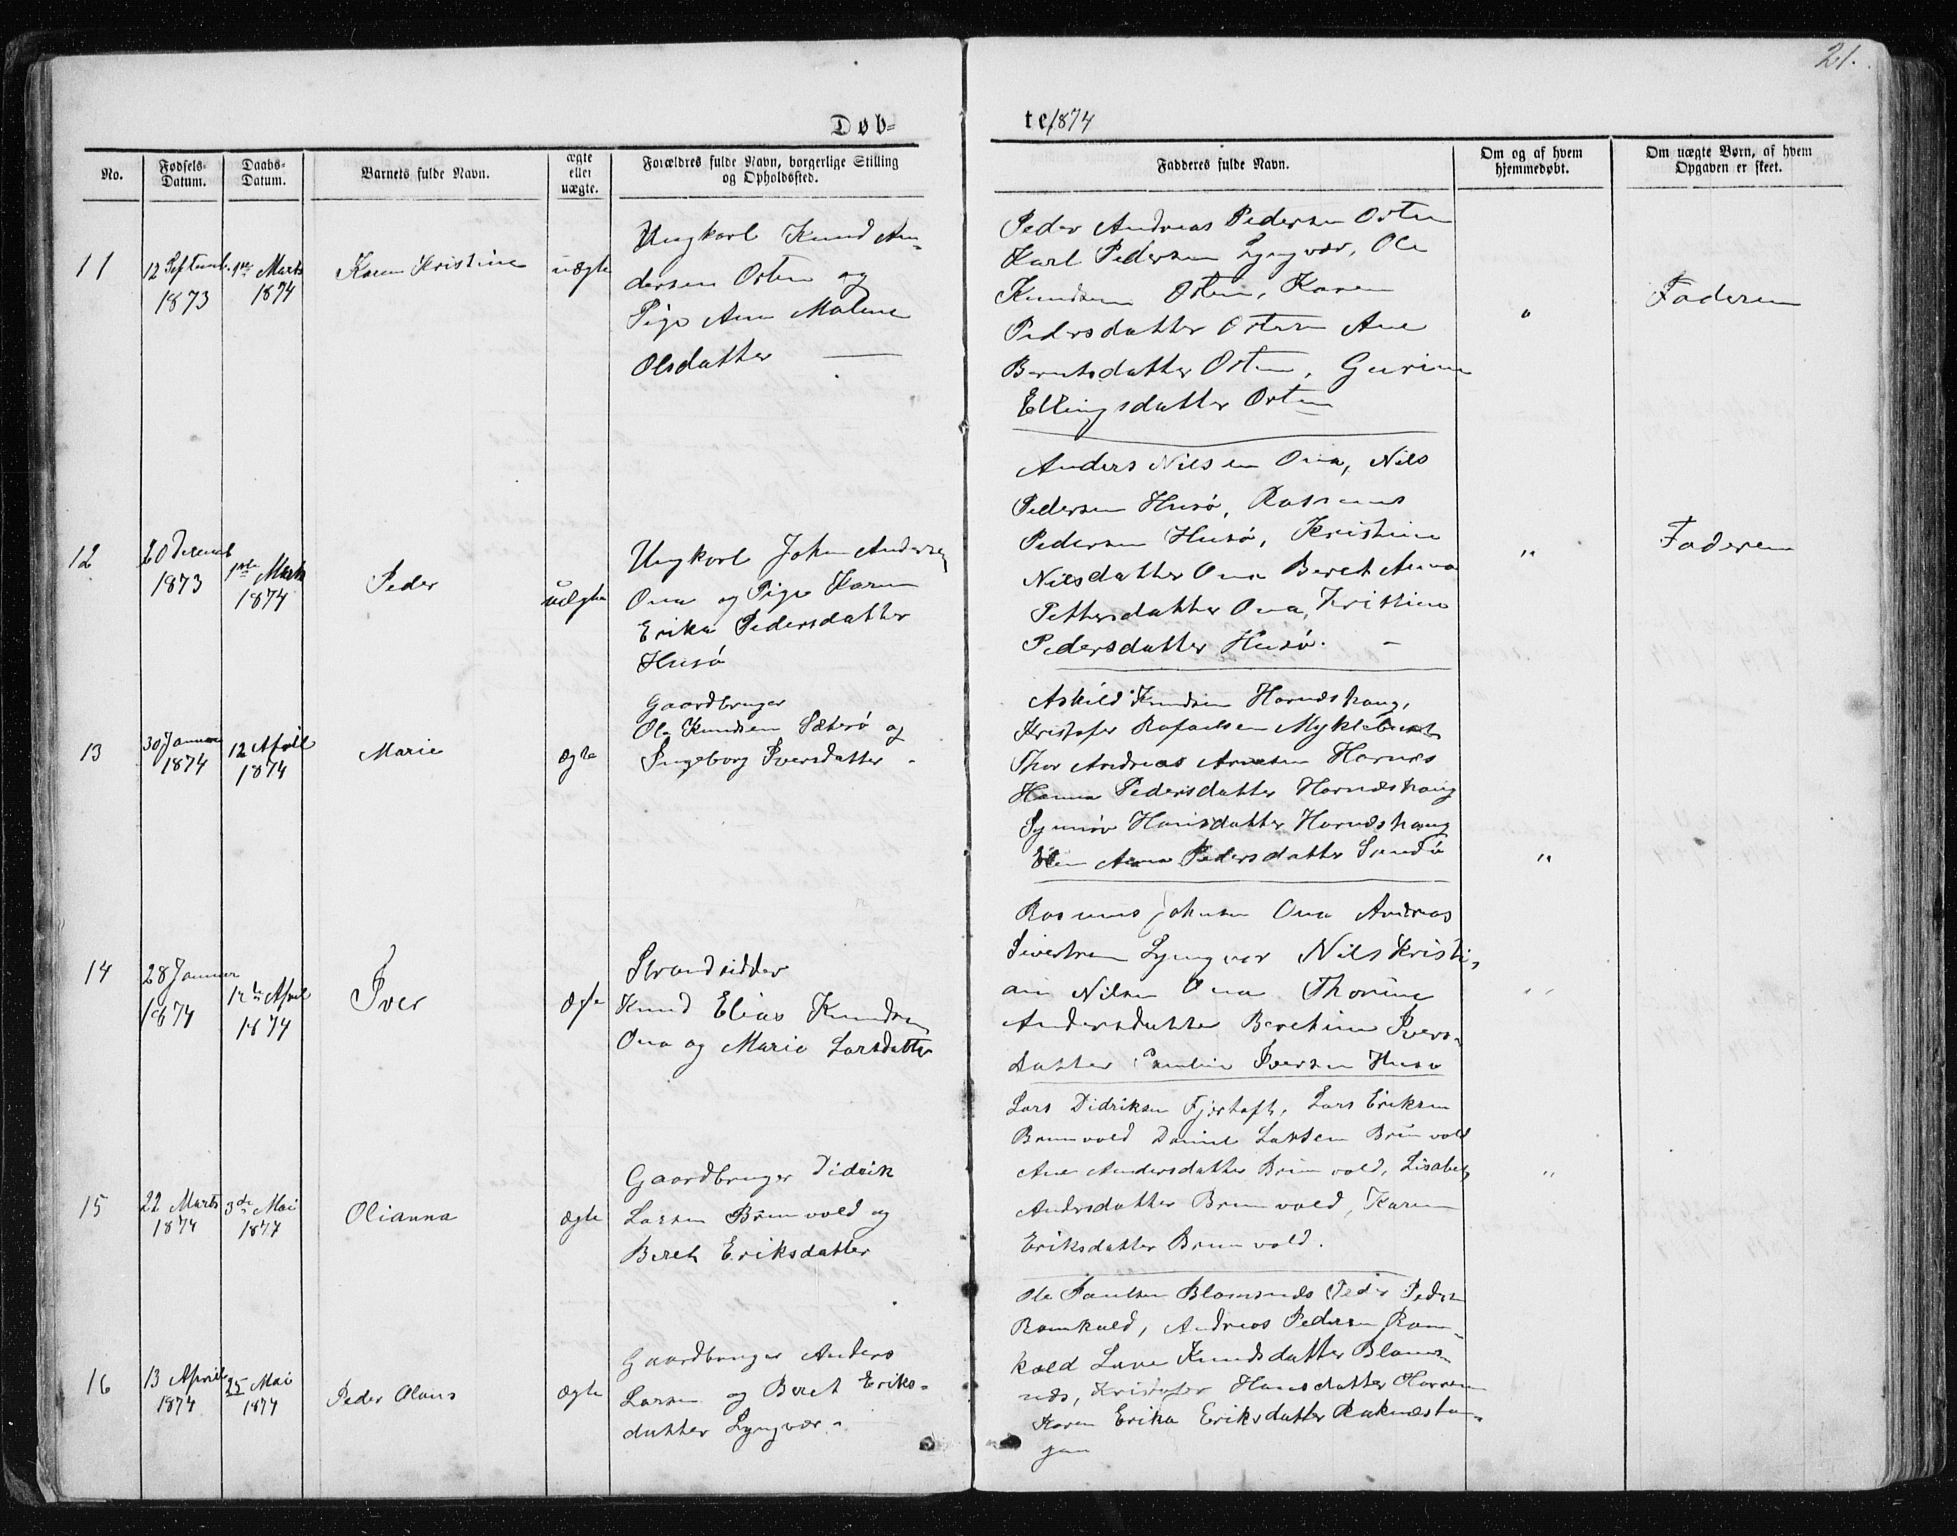 21.
Døb=
te 1874
No.
Fødsels-
Datum.
Daabs-
Datum.
Barnets fulde Navn.
ægte
eller
uægte.
Forældres fulde Navn, borgerlige Stilling
og Opholdssted.
Fadderes fulde Navn.
Om og af hvem
hjemmedøbt.
Om uægte Børn, af hvem
Opgaven er skeet.
11
12 Septemb.
1873
1ste Marts
1874
Karen Kristine
uægte
Ungkarl Knud An-
dersen Orten og
Pige Ane Malene
Olsdatter
Peder Andreas Pedersen Orten
Karl Pedersen Lyngvær, Ole
Knudsen Orten, Karen
Pedersdatter Orten Ane
Berntsdatter Orten, Gurine
Ellingsdatter Orten
"
Faderen
12
20 Decemb
1873
1ste Marts
1874
Peder
uægte
Ungkarl John Andersen
Ona og Pige Karen
Erika Pedersdatter
Husø
Anders Nilsen Ona, Nils
Pedersen Husø, Rasmus
Pedersen Husø, Kristine
Nilsdatter Ona Beret Anna
Pettersdatter Ona, Kristine
Pedersdatter Husø.
"
Faderen
13
30 Januar
1874
12 April
1874
Marie
ægte
Gaardbruger
Ole Knudsen Sæterø og
Ingeborg Iversdatter
Askild Knudsen Harnæshaug,
Kristofer Rafaelsen Myklebust
Thor Andreas Arnesen Harnæs
Hanna Pedersdatter Harnæshaug
Synnøv Hansdatter Harnæshaug
Elen Anna Pedersdatter Sandø
"
14
28 Januar
1874
12te April
1874
Iver
ægte
Strandsidder
Knud Elias Knudsen
Ona og Marie Larsdatter
Rasmus Johnsen Ona Andreas
Sivertsen Lyngvær Nils Kristi-
an Nilsen Ona Thorine
Andersdatter Beretine Ivers-
datter Pauline Iversen Husø
"
15
22 Marts
1874
3de Mai
1874
Olianna
ægte
Gaardbruger Didrik
Larsen Brunvold og
Beret Eriksdatter
Lars Didriksen Fjørtoft, Lars Eriksen
Brunvold Daniel Larsen Brunvold
Ane Andersdatter Brunvold, Lisabeth
Andersdatter Brunvold, Karen
Eriksdatter Brunvold.
"
16
13 April
1874
25 Mai
1874
Peder Olaus
ægte
Gaardbruger Anders
Larsen og Beret Eriks-
datter Lyngvær.
Ole Paulsen Blomsnæs Peder Pedersen
Romkald, Andreas Pedersen Rom-
kald Lave Knudsdatter Bloms-
næs, Kristofer Hansdatter
Karen Erika Eriksdatter Raknæstan-
gen